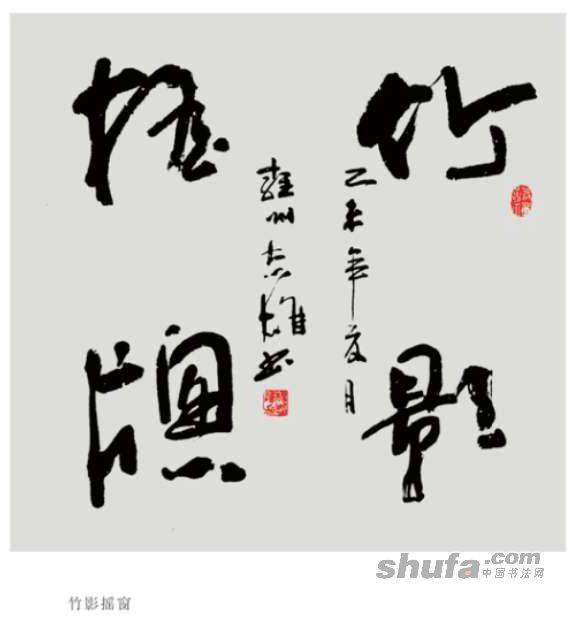 竹影
摇牕
乙未年夏月
雍州志雄书
shufa.com
中国书法网
竹影摇窗